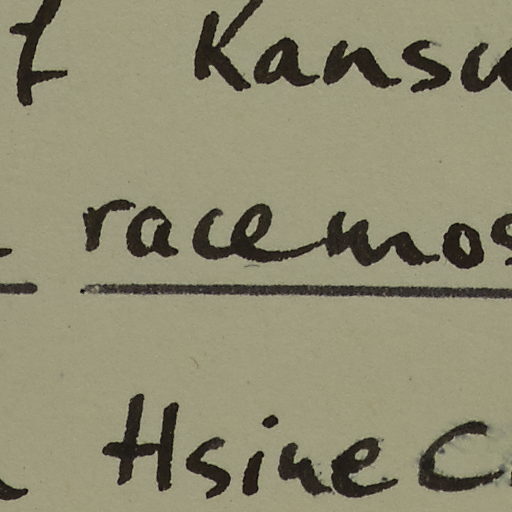 f Kansu
racemos
Hsine C